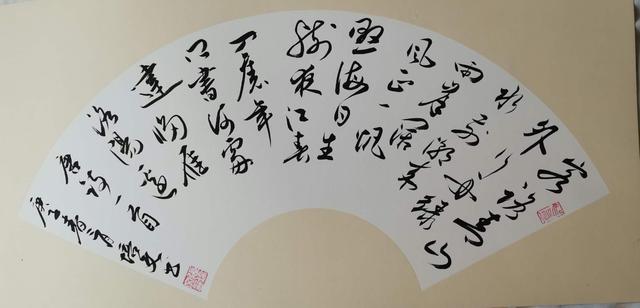 客路青山
外行舟绿
水前潮平
两岸阔
风正一帆
悬海日生
残夜江春
入旧年
乡书何处
達归雁
洛陽边
唐诗一首
庚子春月